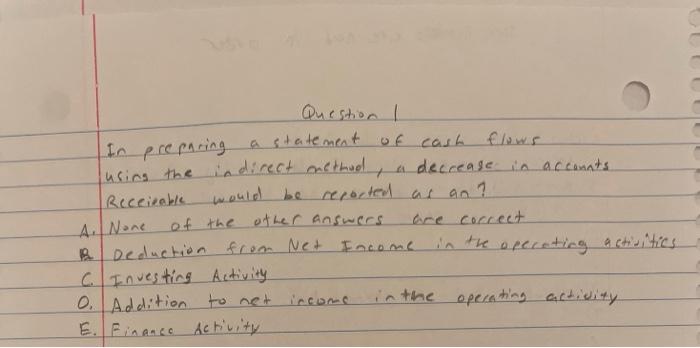 Question 1
In preparing a statement of cash flows
using the indirect method, a decrease in accounts
Receivable would be reported as an?
A. None of the other answers are correct
B Deduction from Net Income in the operating activities
C. Investing Activity
D. Addition to net income in the operating activity
E. Finance Activity